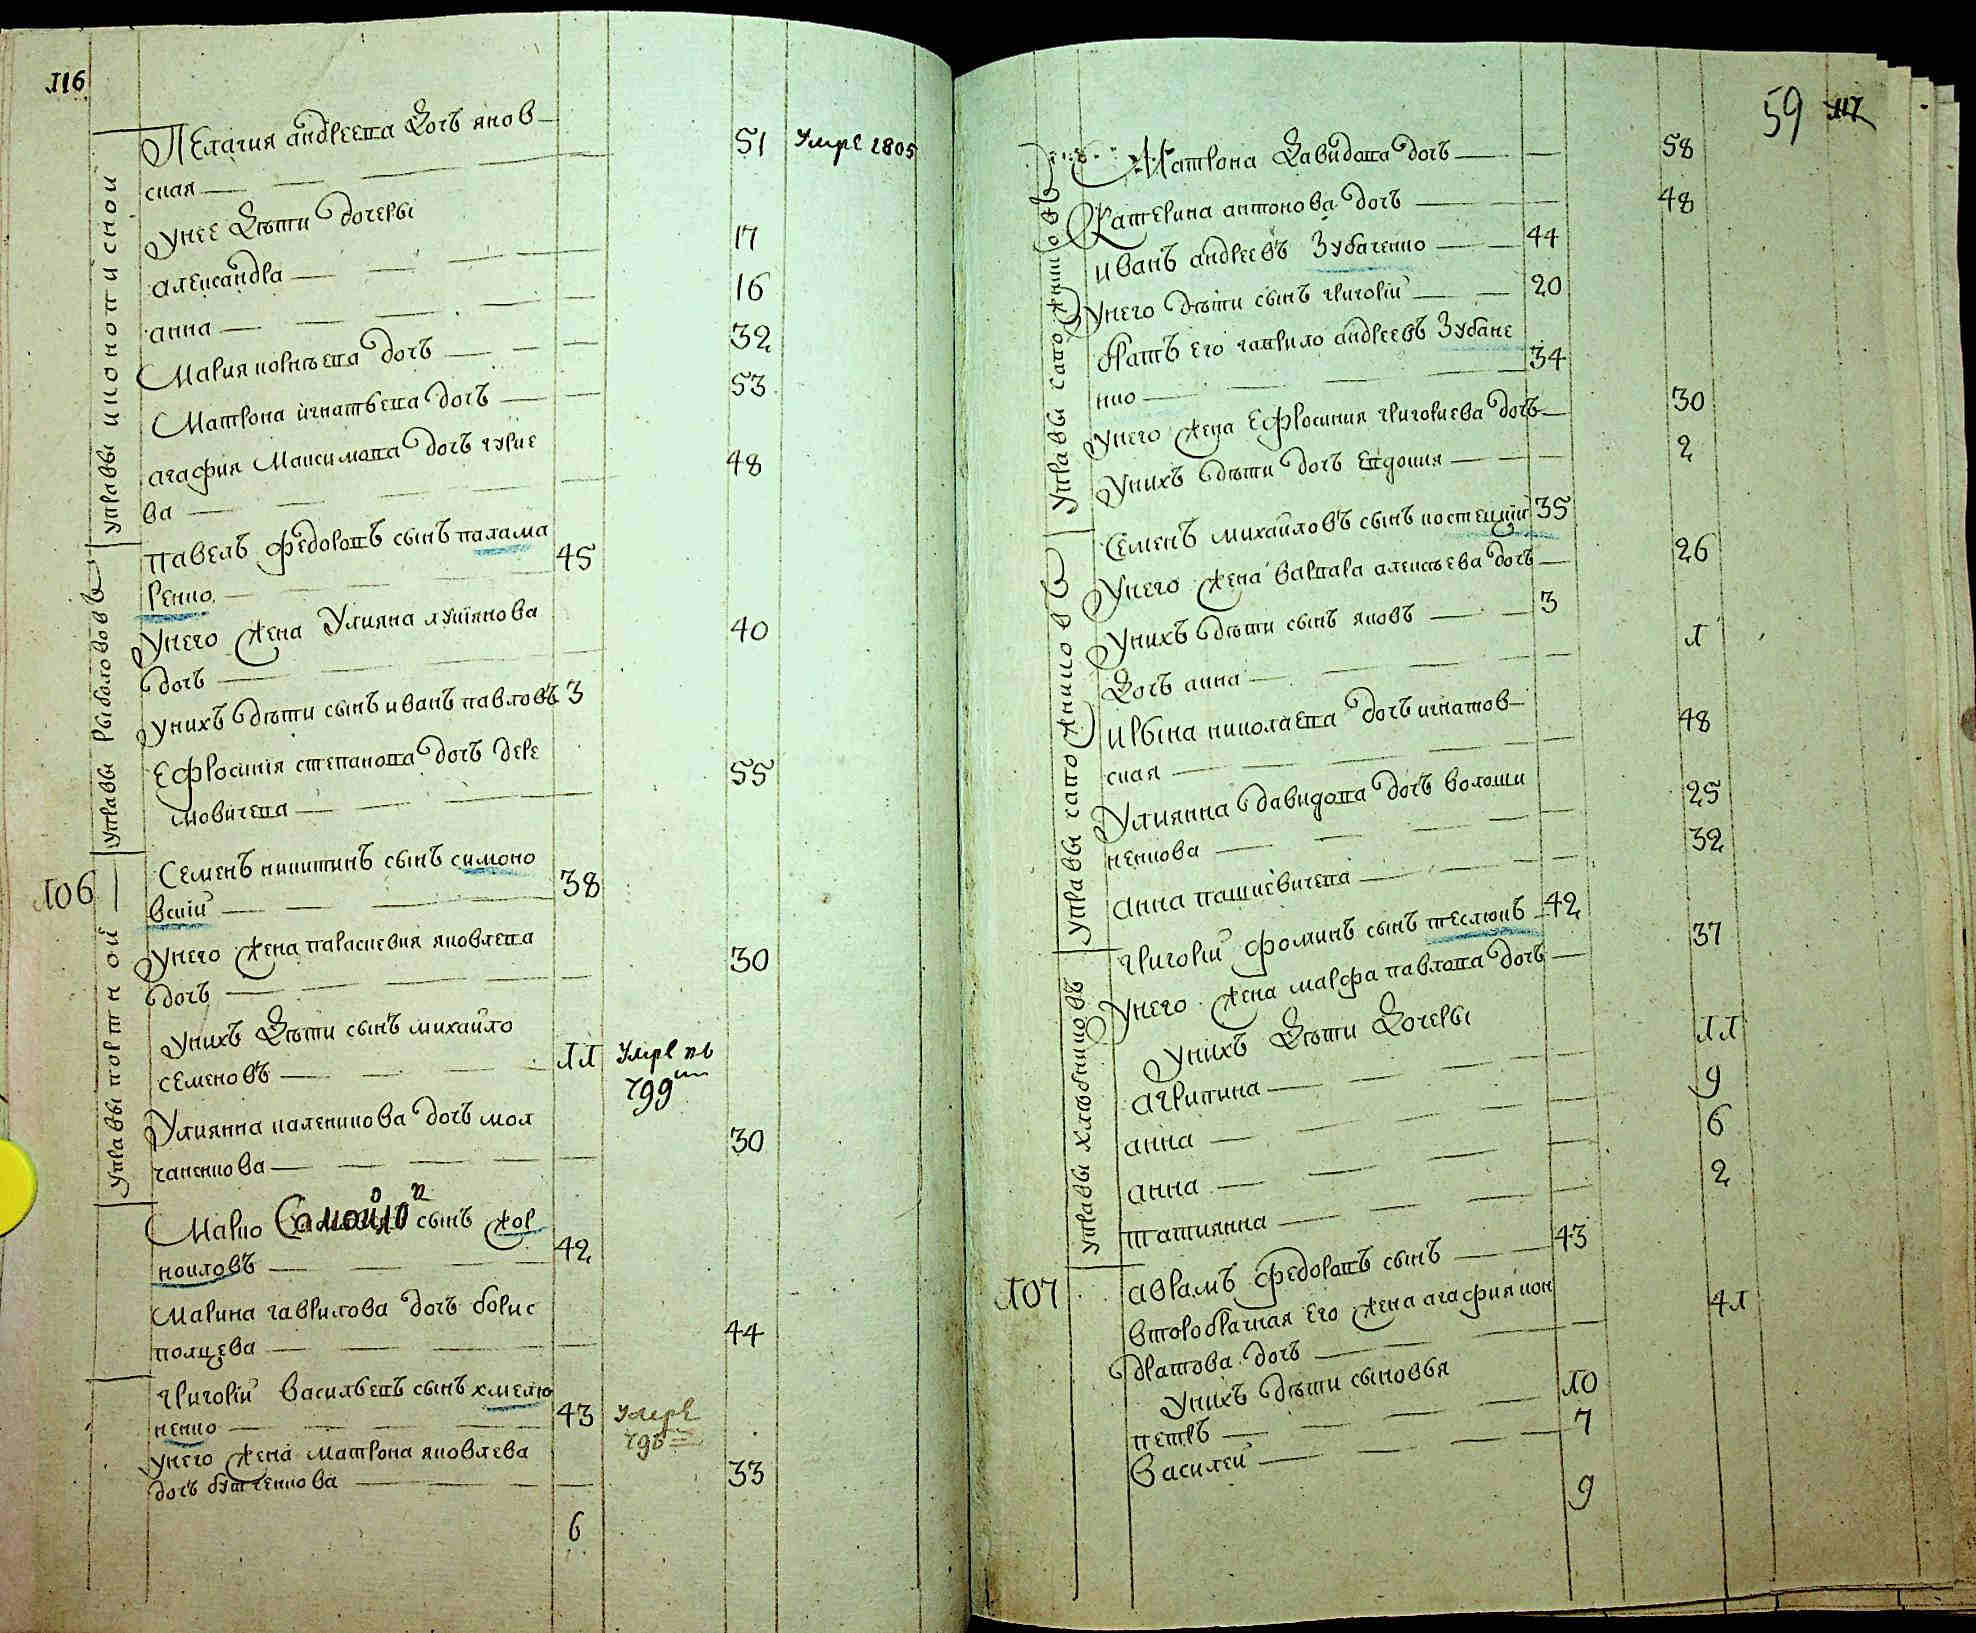 116
Пелагия андреева дочъ янов
ская 51 Умре 1805
Унее дѣти дочеры
александра 17
анна 16
Мария корнѣева дочъ 32
Матрона игнатьева дочъ 53
агафия Максимова дочъ гурие
ва 48
управы иконописнои
павелъ федоровъ сынъ палама
ренко 45
Унего жена Улияна лукіянова
дочъ 40
Унихъ дѣти сынъ иванъ павловъ 3
Ефросинія степанова дочъ дере
мовичева 55
управы рыболововъ
106
Семенъ никитинъ сынъ симоно
вскій 38
Унего жена параскевия яковлева
дочъ 30
Унихъ дѣти сынъ михайло
семеновъ 11 Умре въ
799
Улиянна каленикова дочъ мол
чаненкова 30
управы портной
Марко Самойлов сынъ жор
нокловъ 42
Марина гаврилова дочъ борис
полцева 44
григорій васильевъ сынъ хмелю
ненко 43 Умре
796
унего жена матрона яковлева
дочъ бутченкова 33
6
59 117
Матрона давидова дочъ 58
Катерина антонова дочъ 48
иванъ андреевъ Зубаченко 44
Унего дѣти сынъ григорій 20
братъ его гаврило андреевъ Зубаче
нко 34
Унего жена Ефросиния григориева дочъ 30
Унихъ дѣти дочъ Евдокия 2
управы сапожниковъ
Семенъ михайловъ сынъ костецкій 35
Унего жена варвара алексѣева дочъ 26
Унихъ дѣти сынъ яковъ 3
дочъ анна 1
ирына николаева дочъ игнатов
ская 48
Улиянна давидова дочъ волоши
ненкова 25
анна пашкевичева 32
управы сапожниковъ
григорій фоминъ сынъ теслюкъ 42
Унего жена марфа павлова дочъ 37
Унихъ дѣти дочеры
агрипина 11
анна 9
анна 6
татиянна 2
управы хлѣбниковъ
107
аврамъ федоровъ сынъ 43
второбрачная его жена агафия кон
дратова дочъ 41
Унихъ дѣти сыновья
петръ 10
василей 7
9